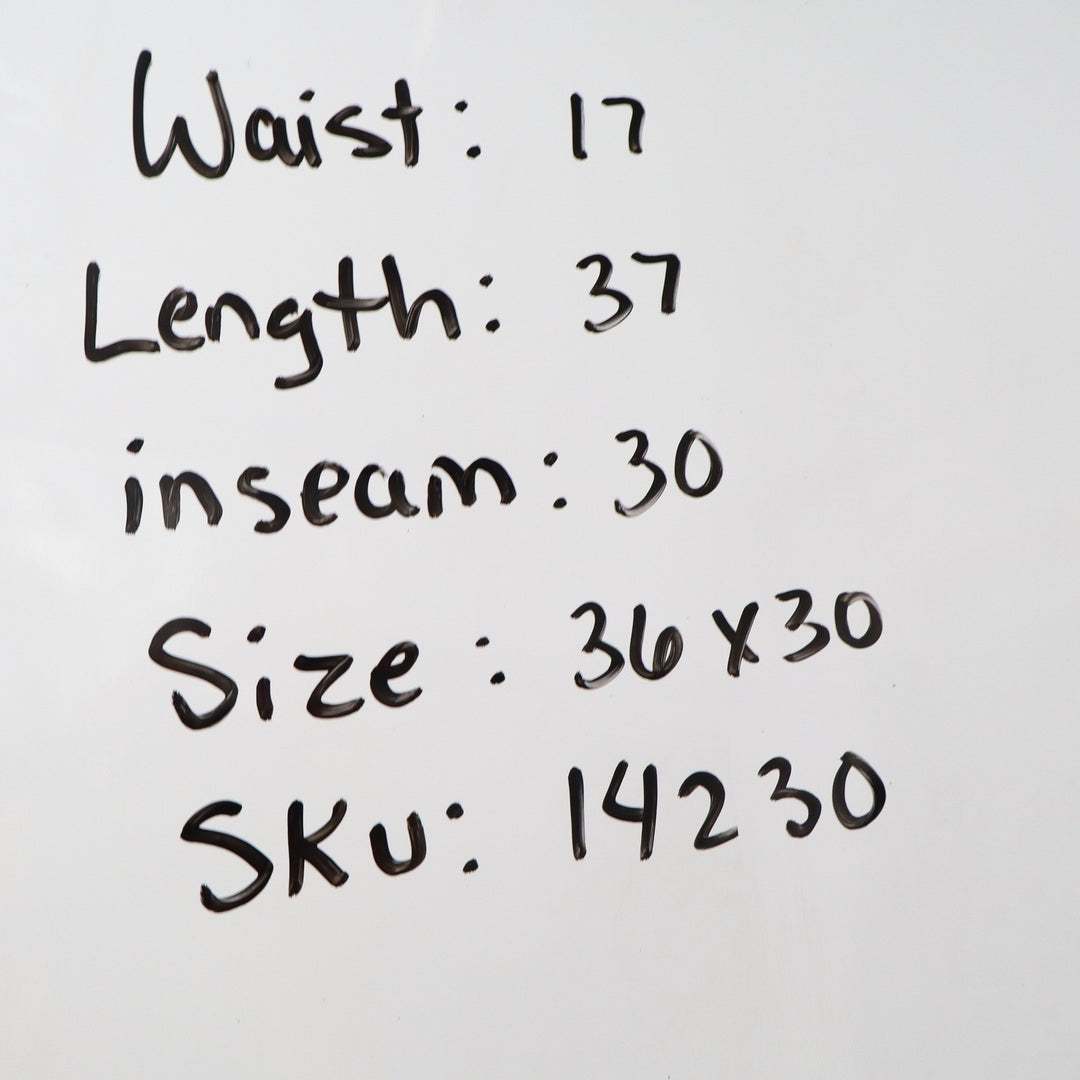 Waist: 17
Length: 37
inseam: 30
Size: 36x30
SKU: 14230